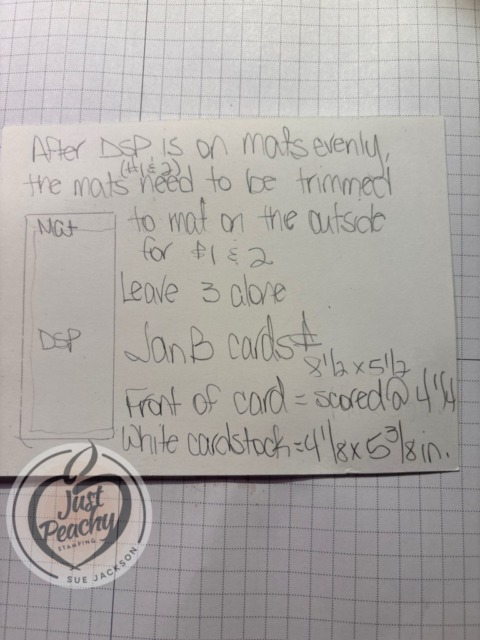 After DSP is on mats evenly,
(#1 & 2)
the mats need to be trimmed
to mat on the outside
for #1 & 2
Leave 3 alone
Mat
DSP
JanB cards
8 1/2 x 5 1/2
Front of card = scored @ 4 1/4
White cardstock = 4 1/8 x 5 3/8 in.
Just
Peachy
STAMPING
SUE JACKSON